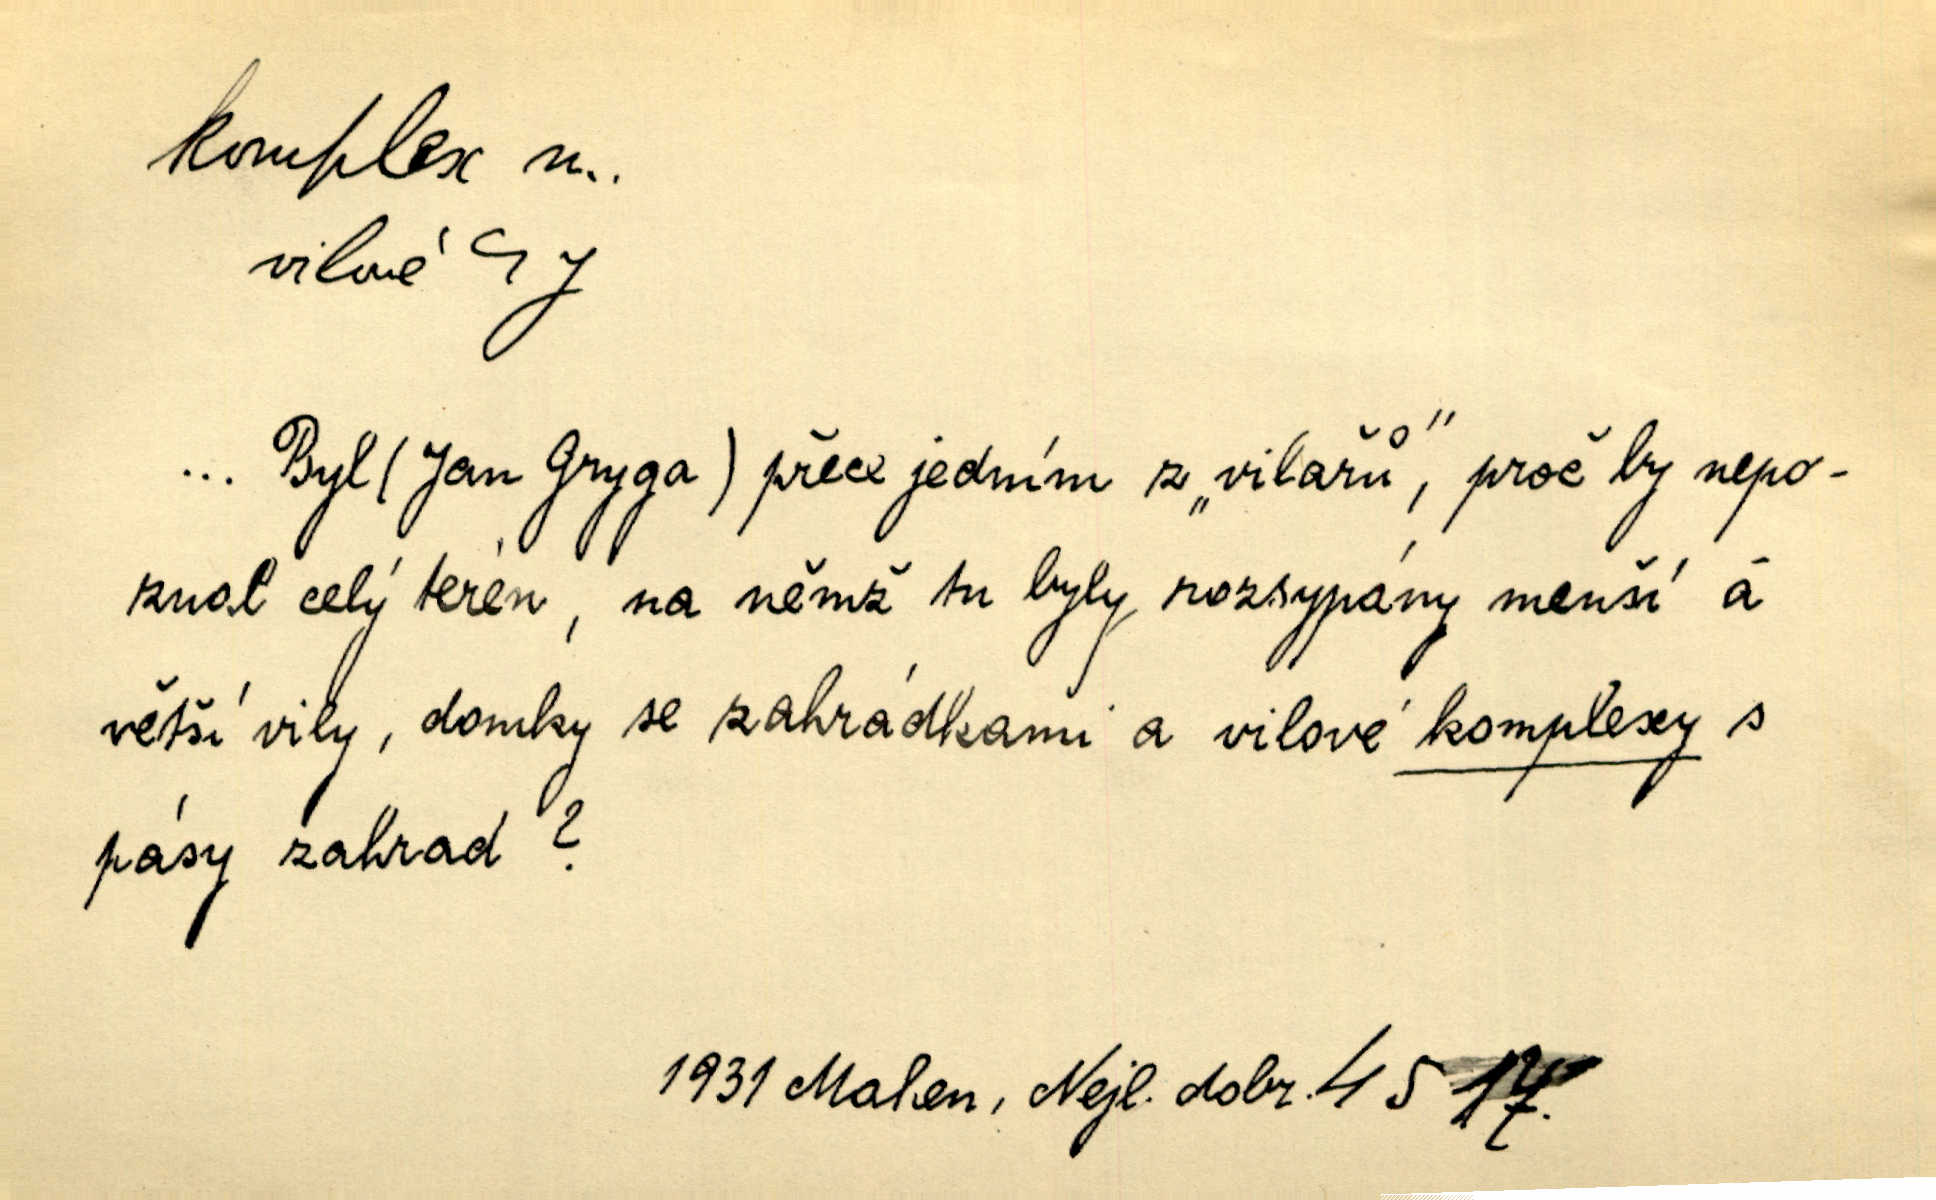 komplex m.
vilové ~ y
... Byl (Jan Gryga) přece jedním z „vilařů“, proč by nepo-
znal celý terén, na němž tu byly rozsypány menší a
větší vily, domky se zahrádkami a vilové komplexy s
pásy zahrad?
1931 Mahen, Nejl. dobr. 45